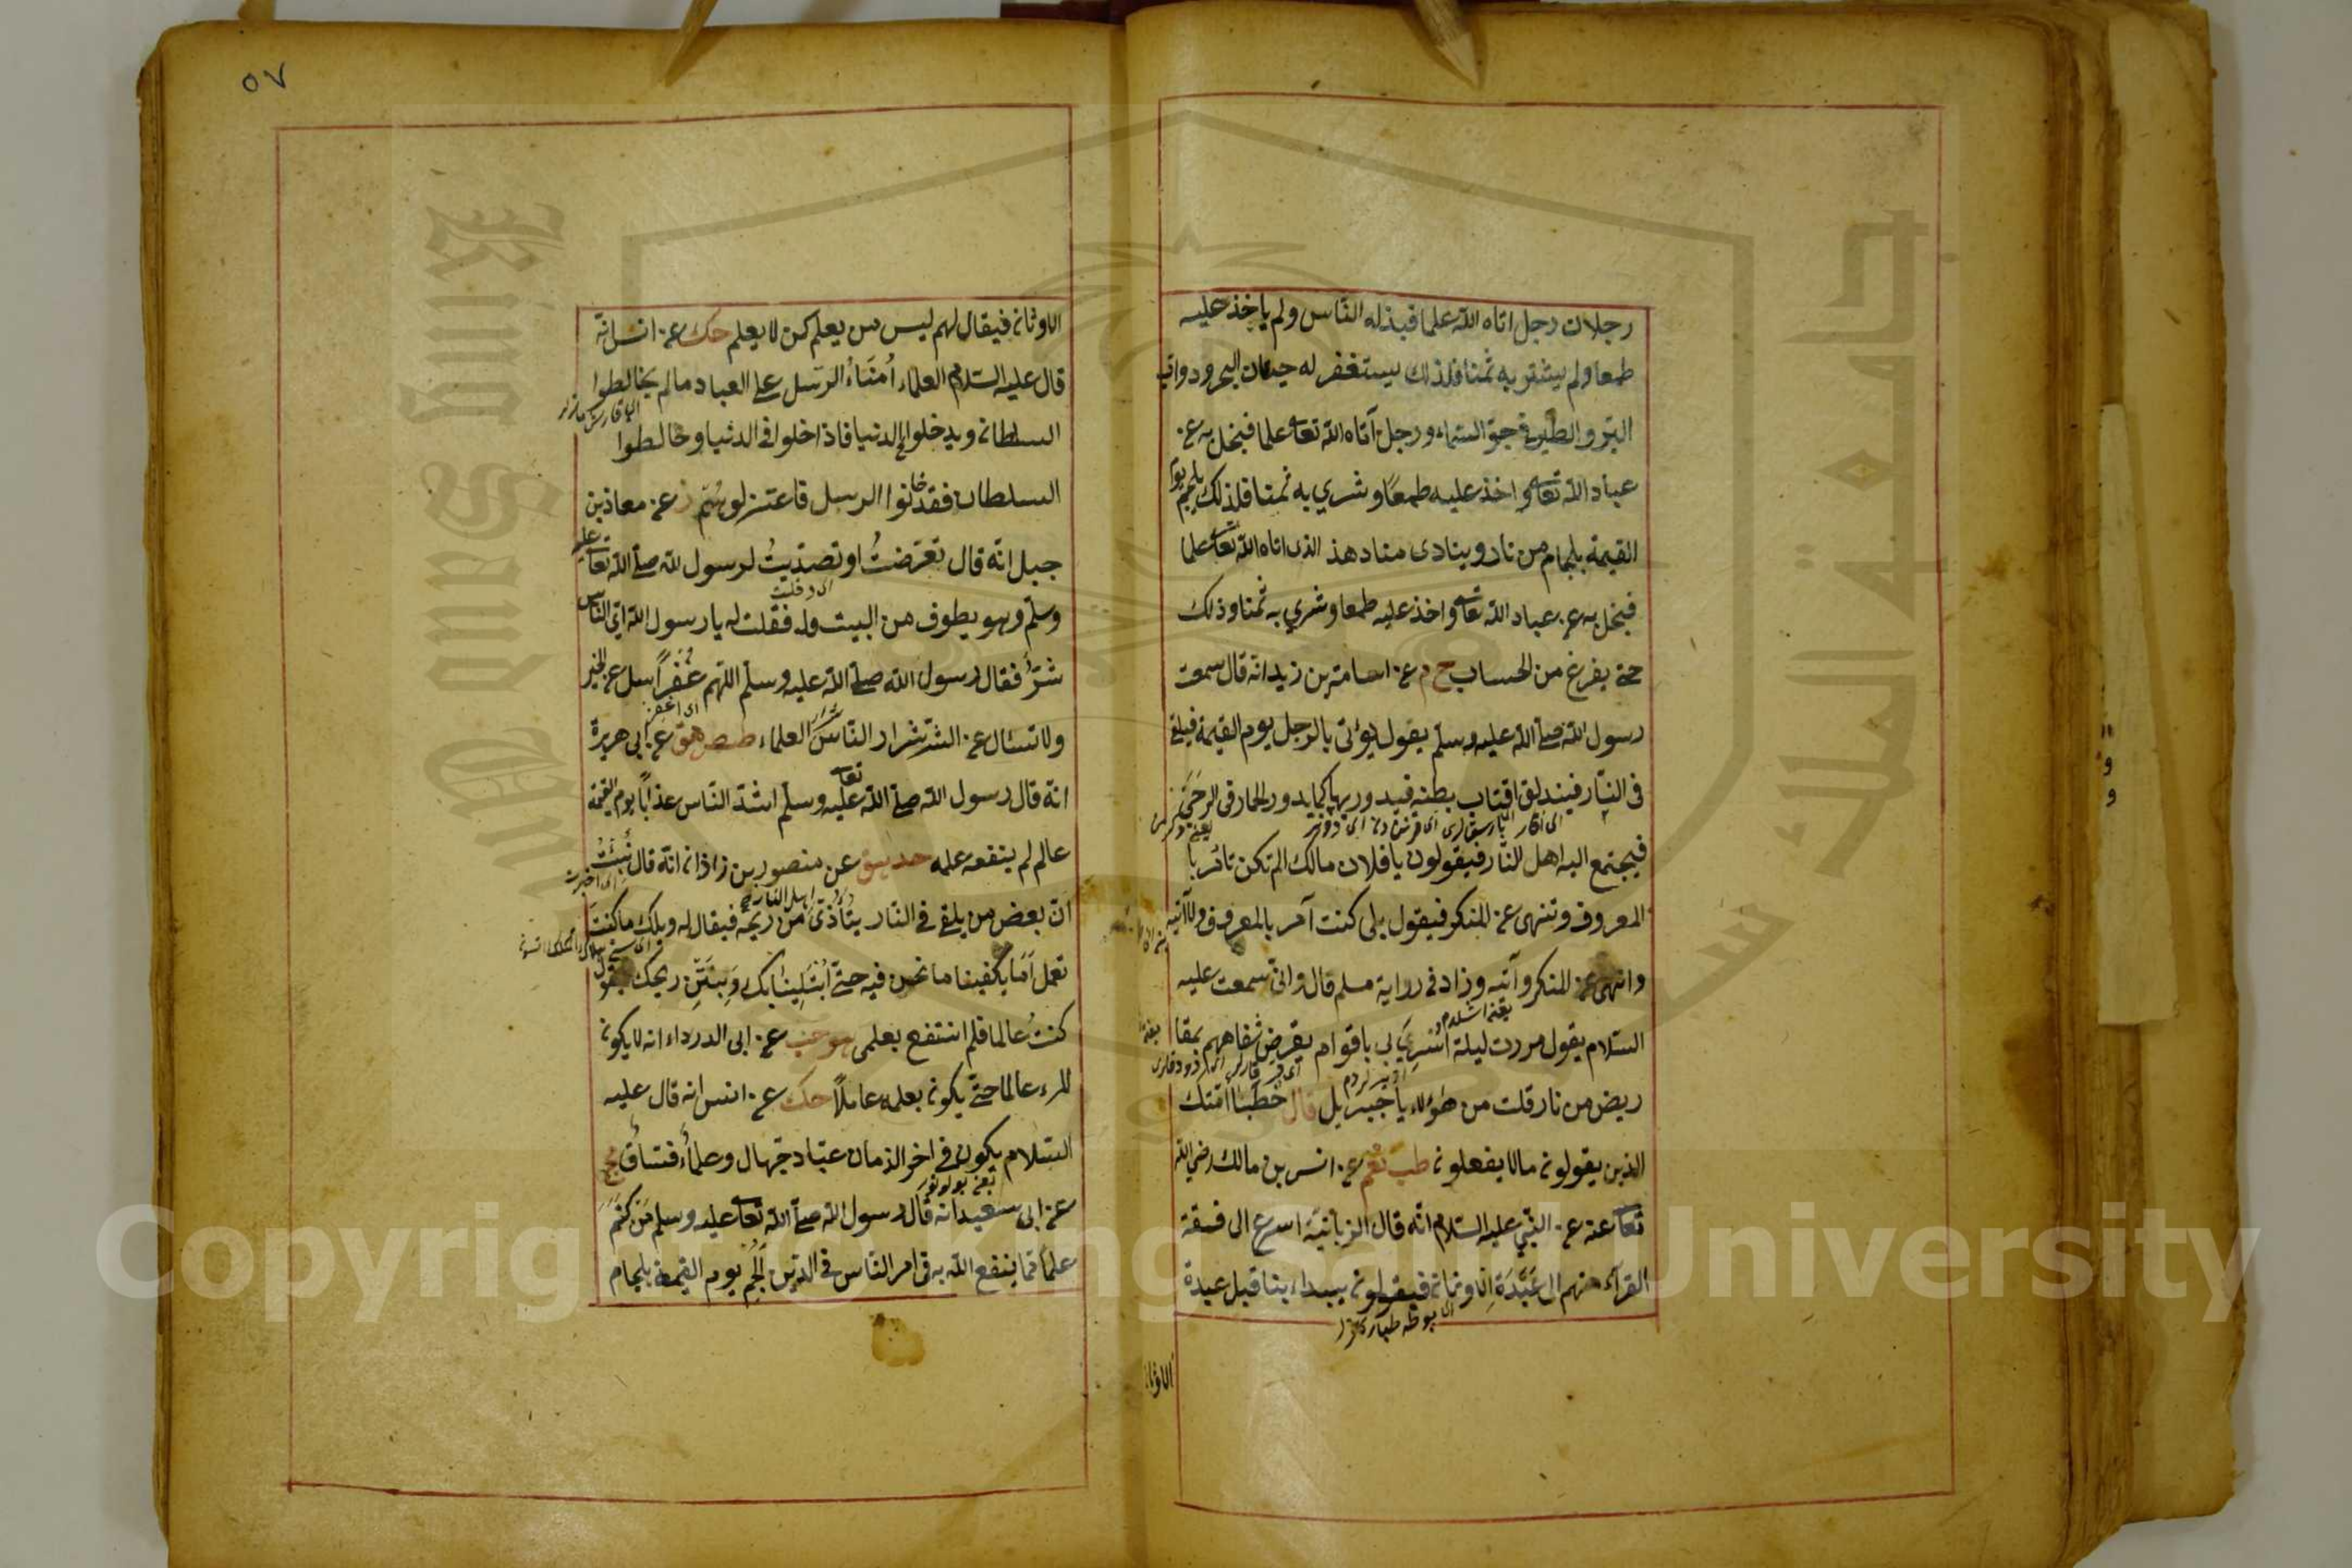 رجلان رجل اتاه الله علما فبذله الناس ولم ياخذ عليه
طمعا ولم يشتر به ثمنا فذلك يستغفر له حيتان البحر ودواب
البر والطير في جو السماء ورجل آتاه الله تعالى علما فبخل به عن
عباد الله تعالى واخذ عليه طمعا وشري به ثمنا فلذلك يلجم يوم
القيمة بلجام من نار وينادى مناد هذ الذى اتاه الله تعالى علما
فبخل به عن عباد الله تعالى واخذ عليه طمعا وشري به ثمنا وذلك
حتى يفرغ من الحساب خ م عن اسامة بن زيد انه قال سمعت
رسول الله صلى الله عليه وسلم يقول يؤتى بالرجل يوم القيمة فيلقى
فى النار فيندلق اقتاب بطنه فيدور بها كما يدور الحمار فى الرحى
فيجتمع اليه اهل النار فيقولون يا فلان مالك الم تكن تأمر با
المعروف وتنهى عن المنكر فيقول بلى كنت آمر بالمعروف ولا آتيه
وانهى عن المنكر وآتيه وزاد فى رواية مسلم قال وانى سمعت عليه
السلام يقول مررت ليلة اسري بى باقوام يقرض شفاههم بمقا
ريض من نار قلت من هؤلاء يا جبرايل قال خطباء امتك
الذين يقولون مالا يفعلون طب نعم عن انس بن مالك رضي الله
تعالى عنه عن النبي عليه السلام انه قال الزبانية اسرع الى فسقة
القرآء منهم الى عبدة الاوثان فيقولون يبداء بنا قبل عبدة
الاوثان
٥٧
الاوثان فيقال لهم ليس من يعلم كمن لا يعلم حك عن انس انه
قال عليه السلام العلماء أمناء الرسل على العباد مالم يخالطوا
السلطان ويدخلوا فى الدنيا فاذا دخلوا فى الدنيا وخالطوا
السلطان فقد خانوا الرسل فاعتزلوهم ز عن معاذ بن
جبل انه قال تعرضت او تصديت لرسول الله صلى الله تعالى عليه
وسلم وهو يطوف من البيت فقلت له يا رسول الله اى الناس
شر فقال رسول الله صلى الله عليه وسلم اللهم غفرا سل عن الخير
ولا تسئال عن الشر شرار الناس شرار العلماء طص هق عن ابى هريرة
انه قال رسول الله صلى الله تعالى عليه وسلم اشد الناس عذابا يوم القيمة
عالم لم ينفعه علمه حد هق عن منصور بن زاذان انه قال نبئت
ان بعض من يلقى فى النار يتأذى من ريحه فيقال له ويلك ما كنت
تعمل اما يكفينا ما نحن فيه حتى ابتلينا بك وبنتن ريحك فيقول
كنت عالما فلم انتفع بعلمى هو حب عن ابى الدرداء انه لا يكون
المرء عالما حتى يكون بعلمه عاملا حك عن انس انه قال عليه
السلام يكون فى اخر الزمان عباد جهال وعلماء فساق مج
عن ابى سعيد انه قال رسول الله صلى الله تعالى عليه وسلم من كتم
علما مما ينفع الله به فى امر الناس فى الدين الجم يوم القيمة بلجام
Copyright © King Saud University
King Saud University
جامعة الملك سعود